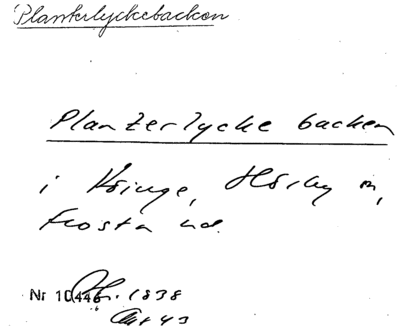 Planterlyckebacken
Planterlycke backen
i Köinge, Hörby sn,
Frosta hd.
Nr 10446. 1838
Akt 43